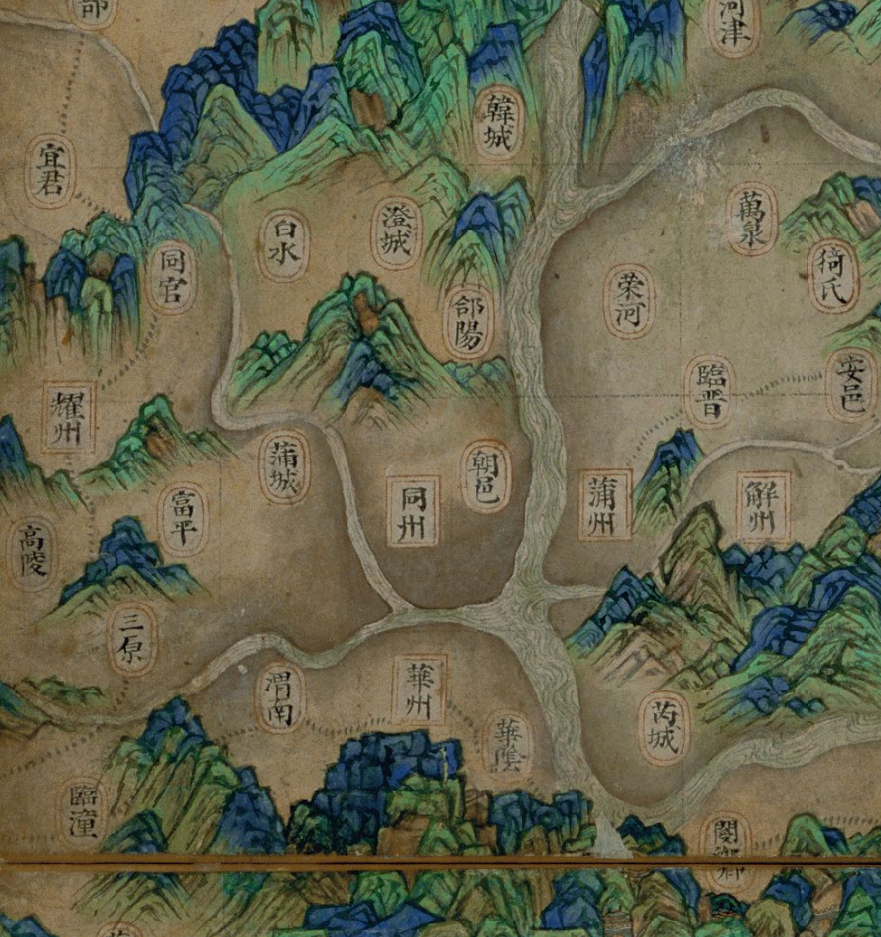 河津
韓城
宜君
萬泉
白水
澄城
猗氏
同官
榮河
郃陽
安邑
臨晋
耀州
蒲城
朝邑
同州
蒲州
解州
富平
高陵
三原
渭南
華州
華陰
芮城
臨潼
閿鄉